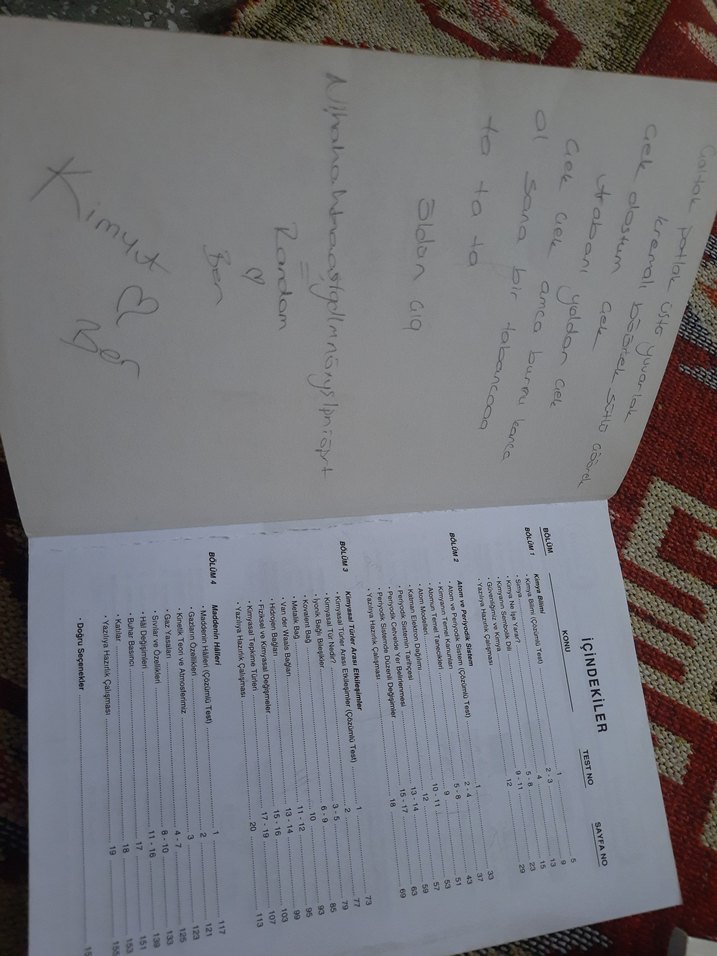 patlak üstü yuvarlak
kremalı böörek sütlü çöörek
Çek dostum çek
arabanı yoldan çek
Çek çek amca burnu kanca
al sana bir tabancaaa
ta ta ta
Random
♡
Ben
Kimya ♡ Ben
İÇİNDEKİLER
BÖLÜM KONU TEST NO SAYFA NO
BÖLÜM 1 Kimya Bilimi 5
- Kimya Bilimi (Çözümlü Test) 1 9
- Simya 2 - 3 13
- Kimya Ne İşe Yarar? 4 15
- Kimyanın Sembolik Dili 5 - 8 23
- Güvenliğimiz ve Kimya 9 - 11 29
- Yazılıya Hazırlık Çalışması 12
BÖLÜM 2 Atom ve Periyodik Sistem 33
- Atom ve Periyodik Sistem (Çözümlü Test) 1 37
- Kimyanın Temel Kanunları 2 - 4 43
- Atomun Temel Tanecikleri 5 - 8 51
- Atom Modelleri 9 53
- Katman Elektron Dağılımı 10 - 11 57
- Periyodik Sistemin Tarihçesi 12 59
- Periyodik Cetvelde Yer Belirlenmesi 13 - 14 63
- Periyodik Sistemde Düzenli Değişimler 15 - 17 69
- Yazılıya Hazırlık Çalışması 18
BÖLÜM 3 Kimyasal Türler Arası Etkileşimler 73
- Kimyasal Türler Arası Etkileşimler (Çözümlü Test) 1 77
- Kimyasal Tür Nedir? 2 79
- İyonik Bağlı Bileşikler 3 - 5 85
- Kovalent Bağ 6 - 9 93
- Metalik Bağ 10 95
- Van der Waals Bağları 11 - 12 99
- Hidrojen Bağları 13 - 14 103
- Fiziksel ve Kimyasal Değişmeler 15 - 16 107
- Kimyasal Tepkime Türleri 17 - 19 113
- Yazılıya Hazırlık Çalışması 20
BÖLÜM 4 Maddenin Hâlleri 117
- Maddenin Hâlleri (Çözümlü Test) 1 121
- Gazların Özellikleri 2 123
- Kinetik Teori ve Atmosferimiz 3 125
- Gaz Yasaları 4 - 7 133
- Sıvılar ve Özellikleri 8 - 10 139
- Hâl Değişimleri 11 - 16 151
- Buhar Basıncı 17 153
- Katılar 18 155
- Yazılıya Hazırlık Çalışması 19
- Doğru Seçenekler